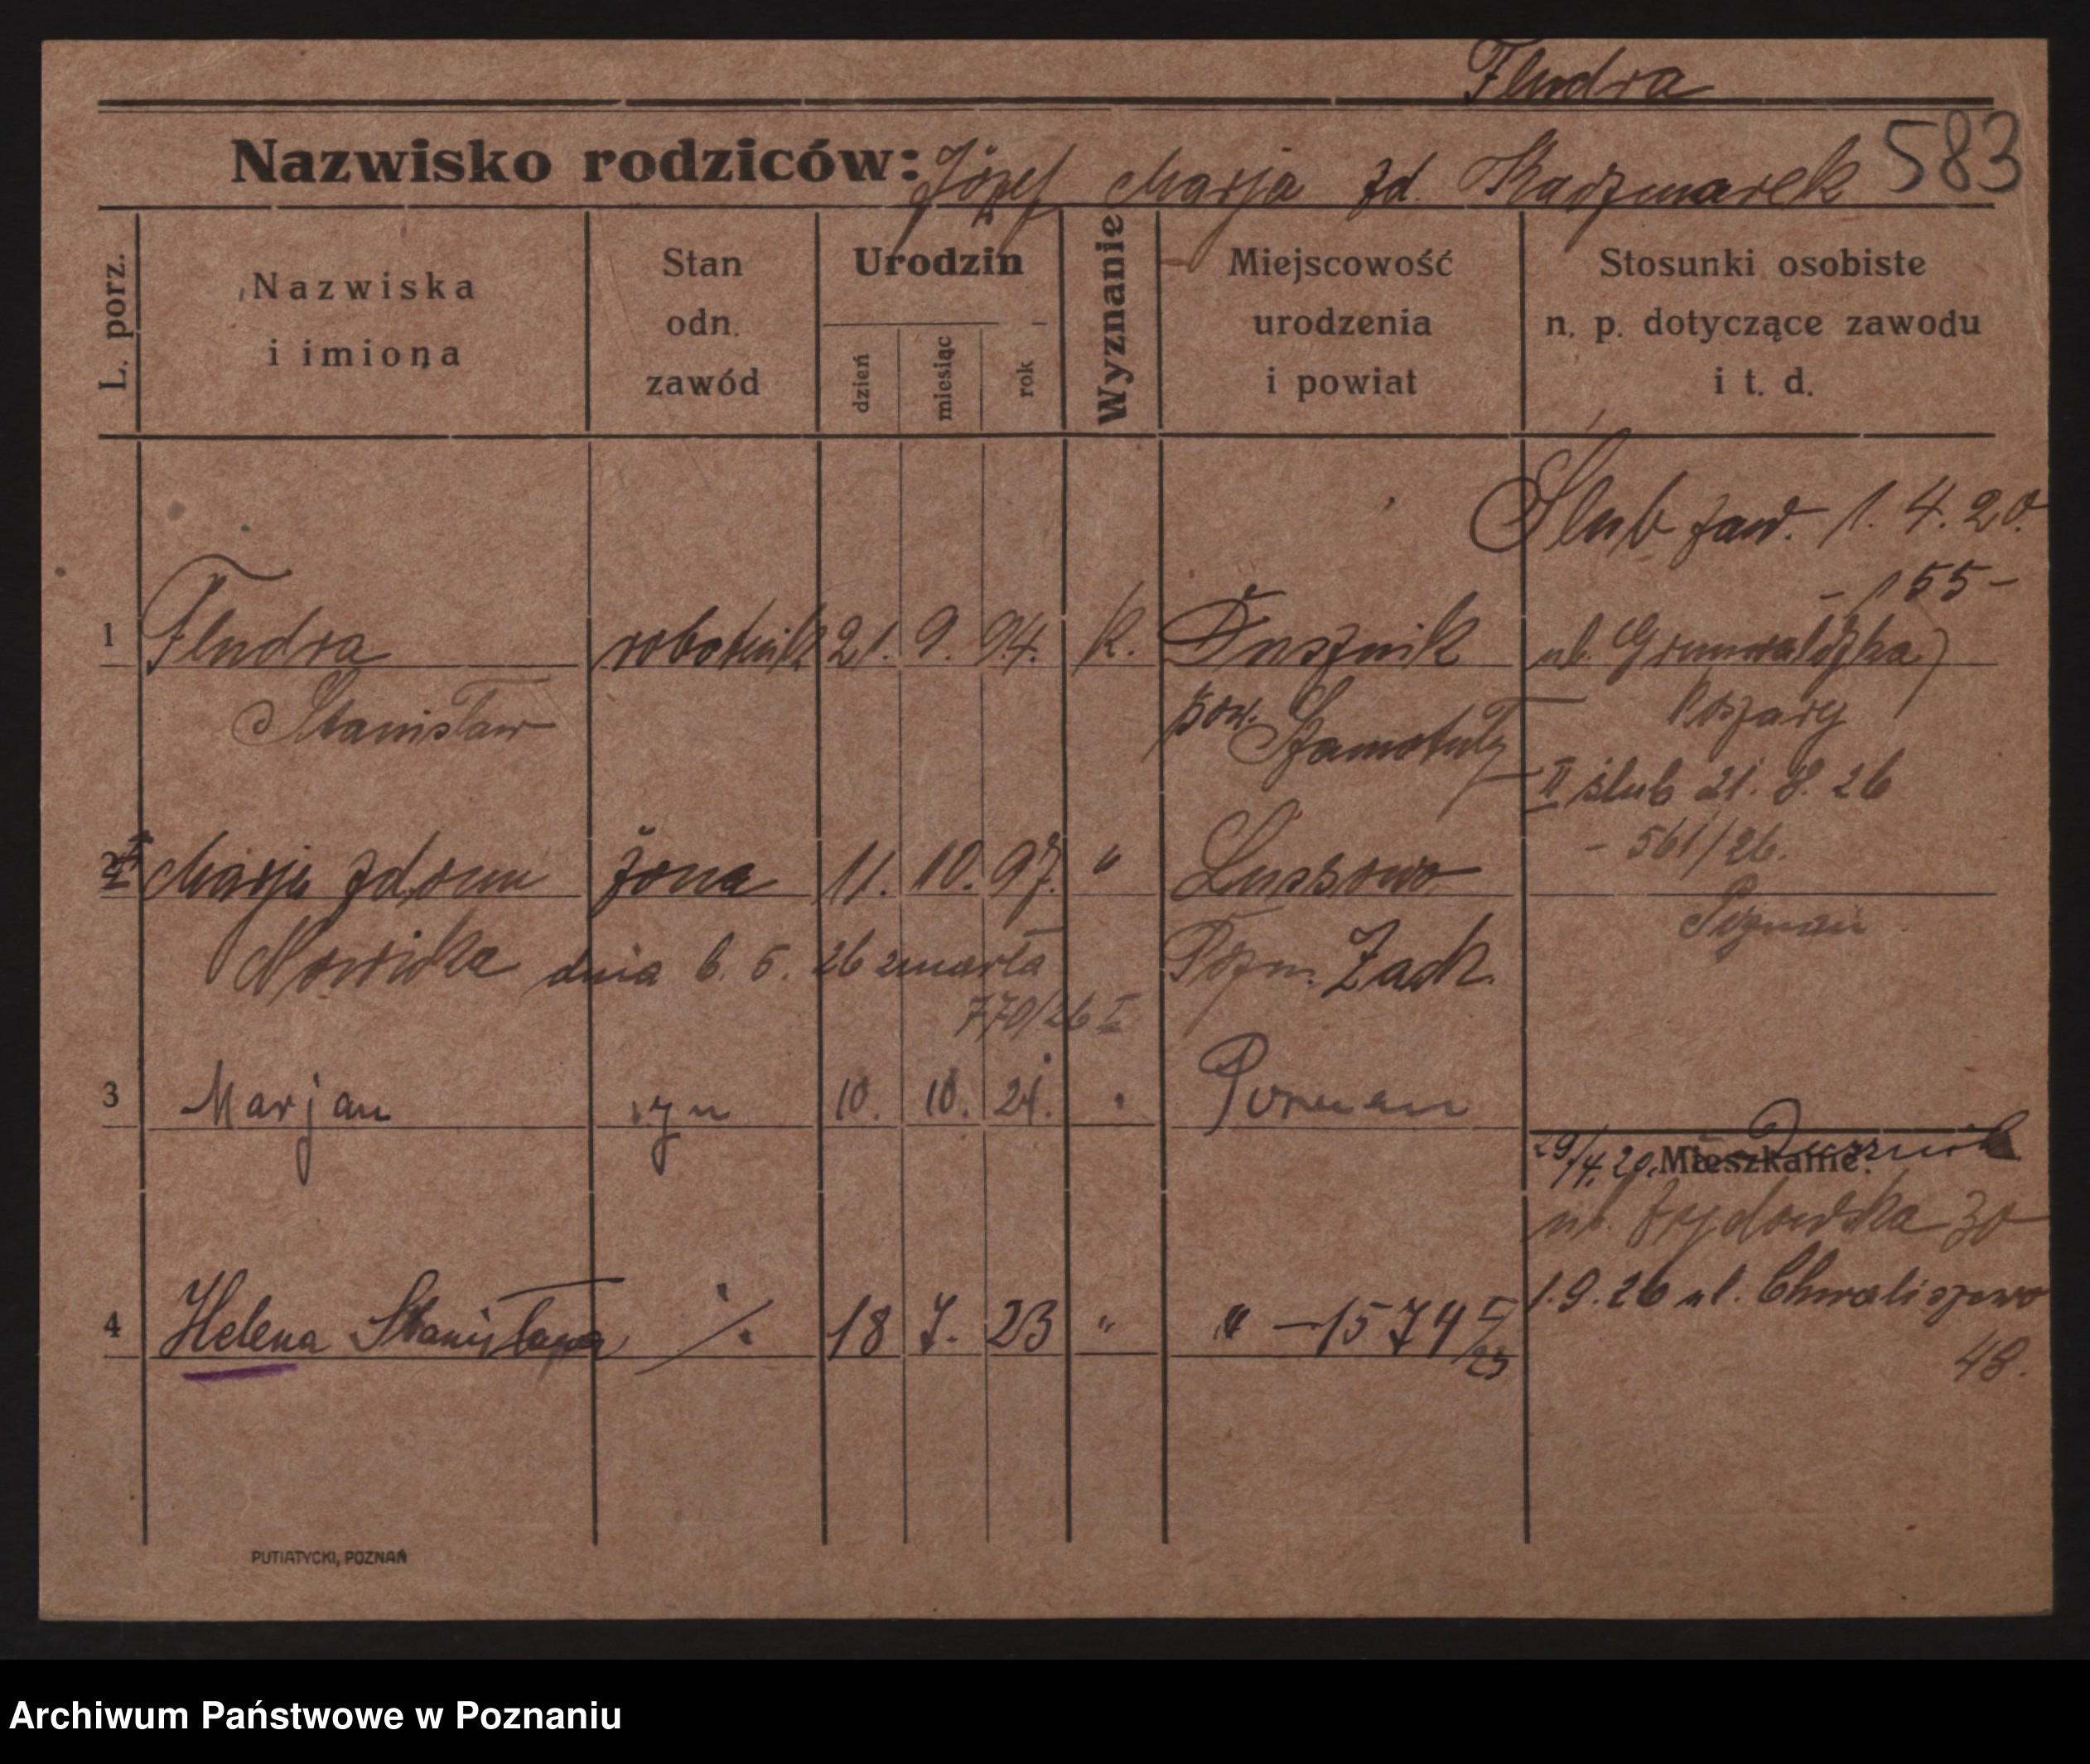 Fludra
Nazwisko rodziców: Józef Marja zd. Kaczmarek 583
L. porz.
Nazwiska
i imiona
Stan
odn.
zawód
Urodzin
dzień
miesiąc
rok
Wyznanie
Miejscowość
urodzenia
i powiat
Stosunki osobiste
n. p. dotyczące zawodu
i t. d.
Ślub zaw. 1. 4. 20.
– 155 –
1 Fludra robotnik 21. 9. 94. K. Dusznik ul. Grunwaldzka
Stanisław pow. Szamotuły
II ślub 21. 8. 26
– 561/26.
2 Marja zdomu żona 11. 10. 97. " Lussowo
Poznań
Nowicka dnia 6. 5. 26 zmarła Pozn. Zach.
770/26 I
3 Marjan syn 10. 10. 21. " Poznań
29/4.20. Mieszkanie: Dusznik
ul. Żydowska 30
1.9.26 ul. Chwaliszewo
48.
4 Helena Stanisława ./. 18 7. 23 " " – 1574 I/23
PUTIATYCKI, POZNAŃ
Archiwum Państwowe w Poznaniu